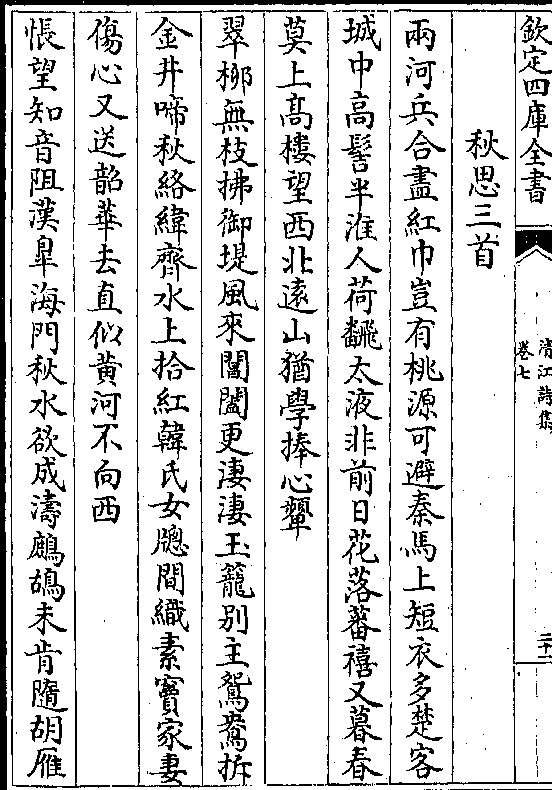 欽定四庫全書
清江詩集
卷七
秋思三首
兩河兵合盡紅巾豈有桃源可避秦馬上短衣多楚客
城中高髻半淮人荷飜太液非前日花落蕃禧又暮春
莫上髙樓望西北遠山猶學捧心顰
翠栁無枝拂御堤風來閶闔更淒淒玉籠别主鴛鴦拆
金井啼秋絡緯齊水上拾紅韓氏女牎間織素竇家妻
傷心又送韶華去直似黄河不向西
悵望知音阻漢臯海門秋水欲成濤鷓鴣未肯隨胡雁